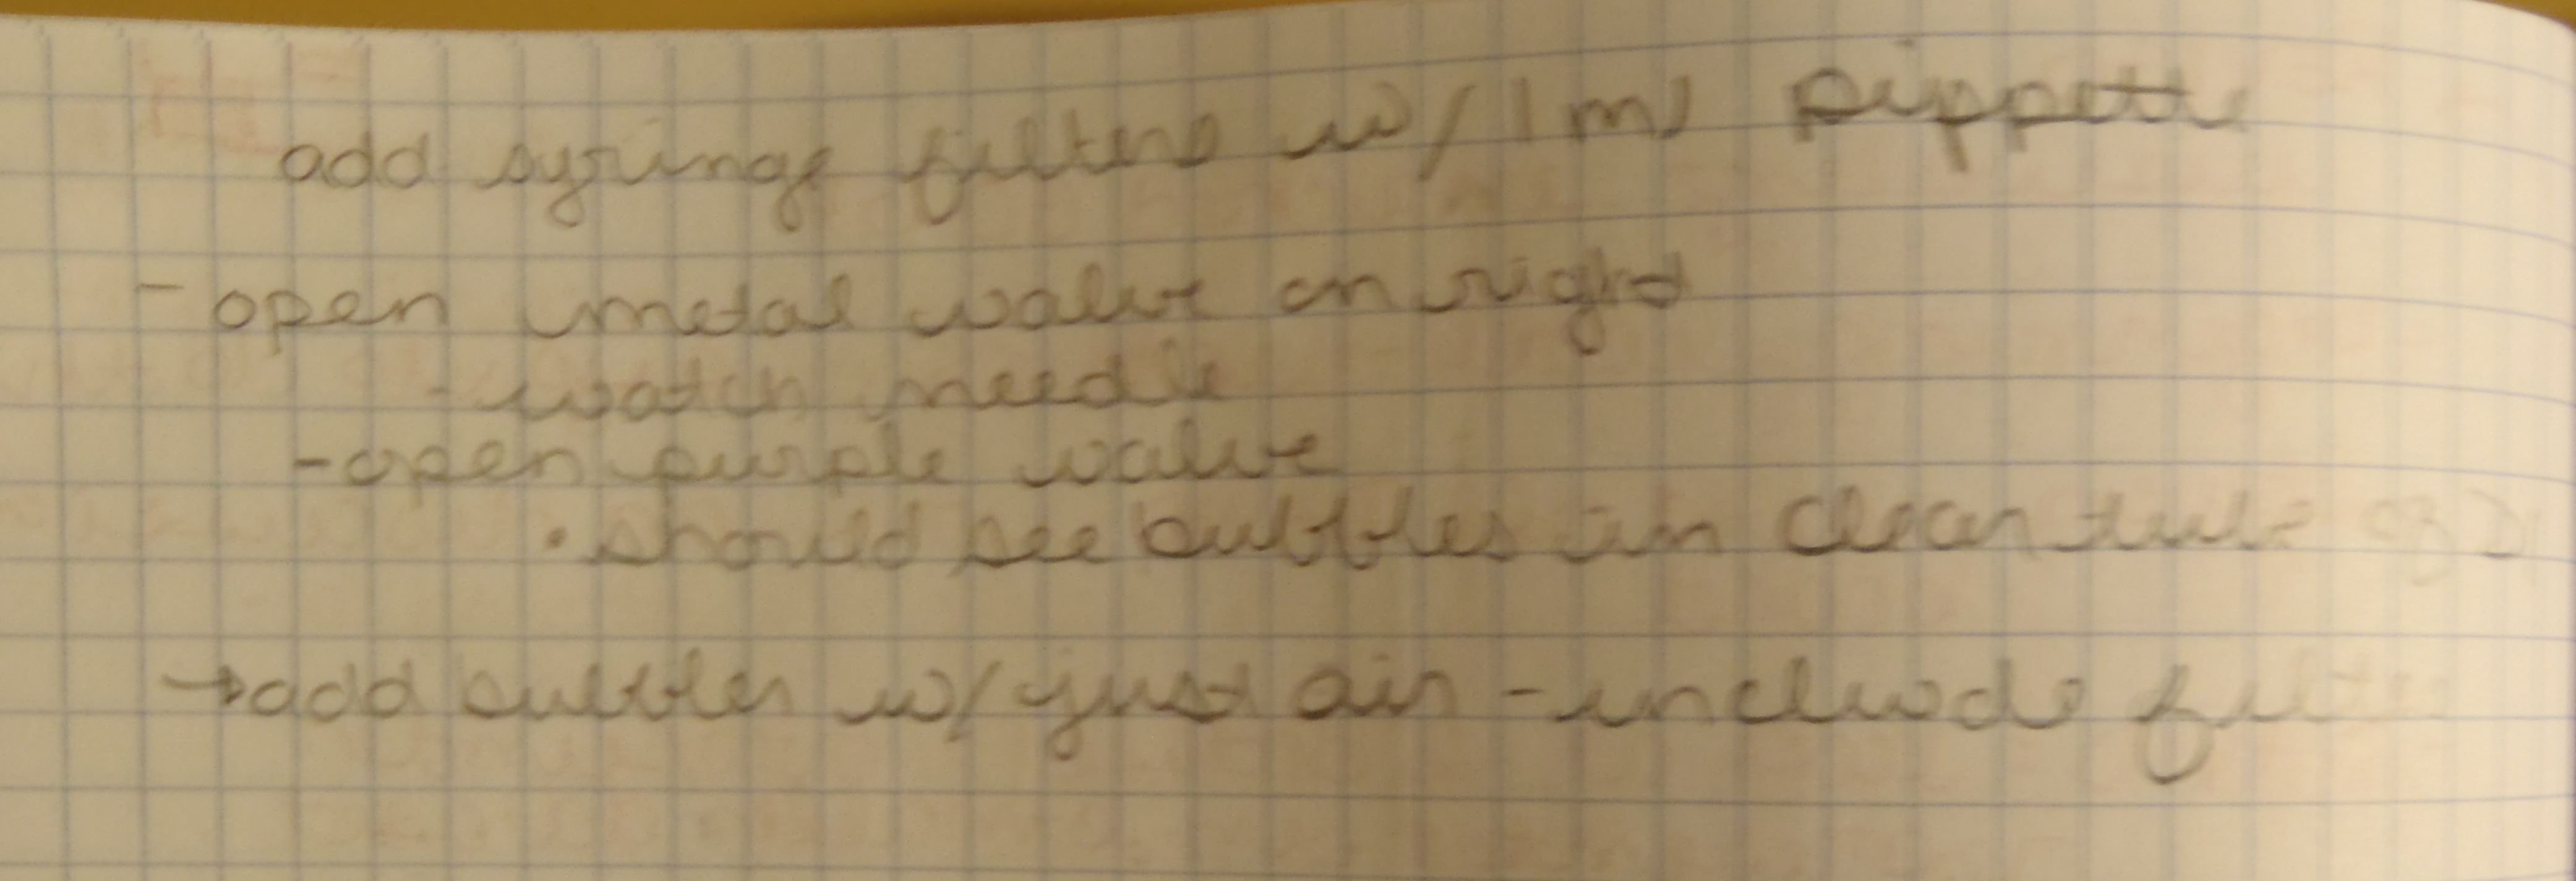 add syringe filters w/ 1 ml pippette
- open metal valve on right
- watch needle
- open purple valve
• should see bubbles in clear tube of
→ add bubbler w/ just air - include